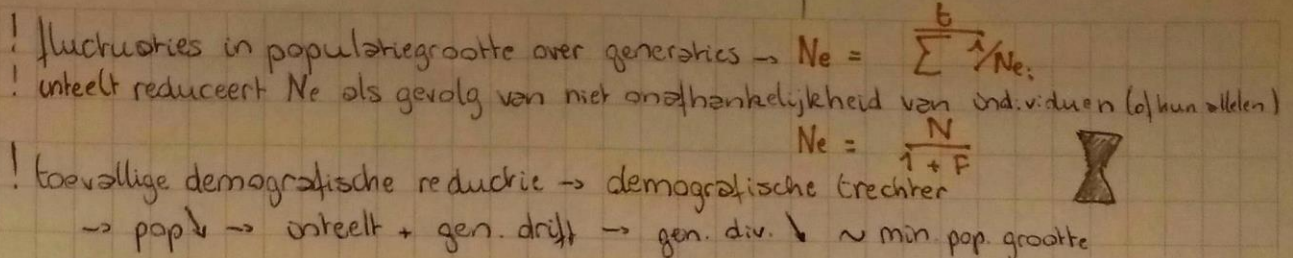 ! fluctuaties in populatiegrootte over generaties → Ne = t / Σ 1/Nei
! inteelt reduceert Ne als gevolg van niet onafhankelijkheid van individuen (of hun allelen)
Ne = N / 1 + F
! toevallige demografische reductie → demografische trechter
→ pop↓ → inteelt + gen. drift → gen. div. ↓ ~ min. pop. grootte